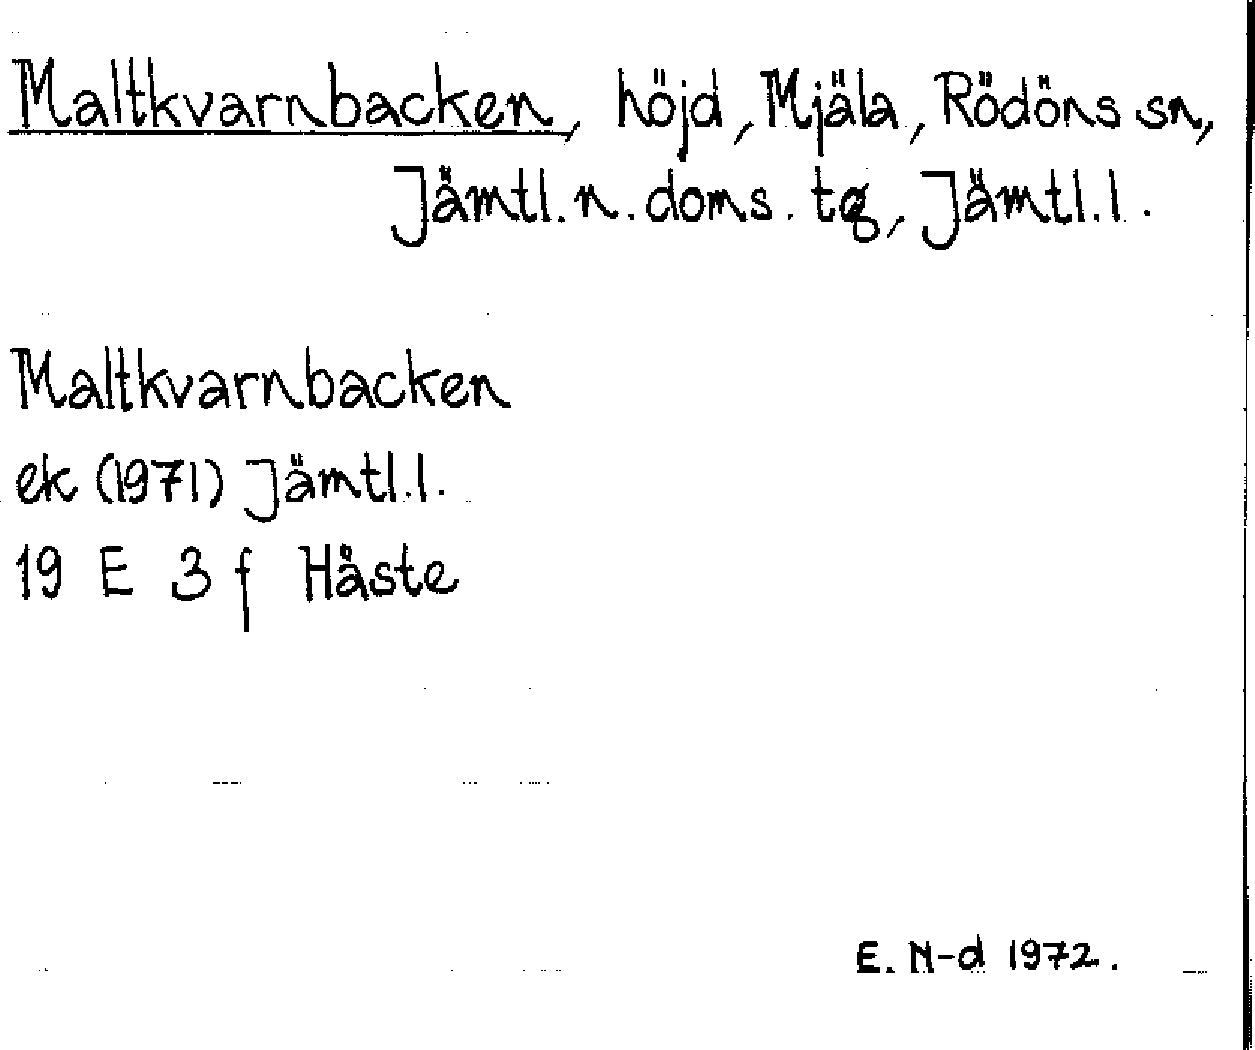 Maltkvarnbacken, höjd, Mjäla, Rödöns sn,
Jämtl. n. doms. tg, Jämtl. l.
Maltkvarnbacken
ek (1971) Jämtl. l.
19 E 3 f Häste
E. N-d 1972.